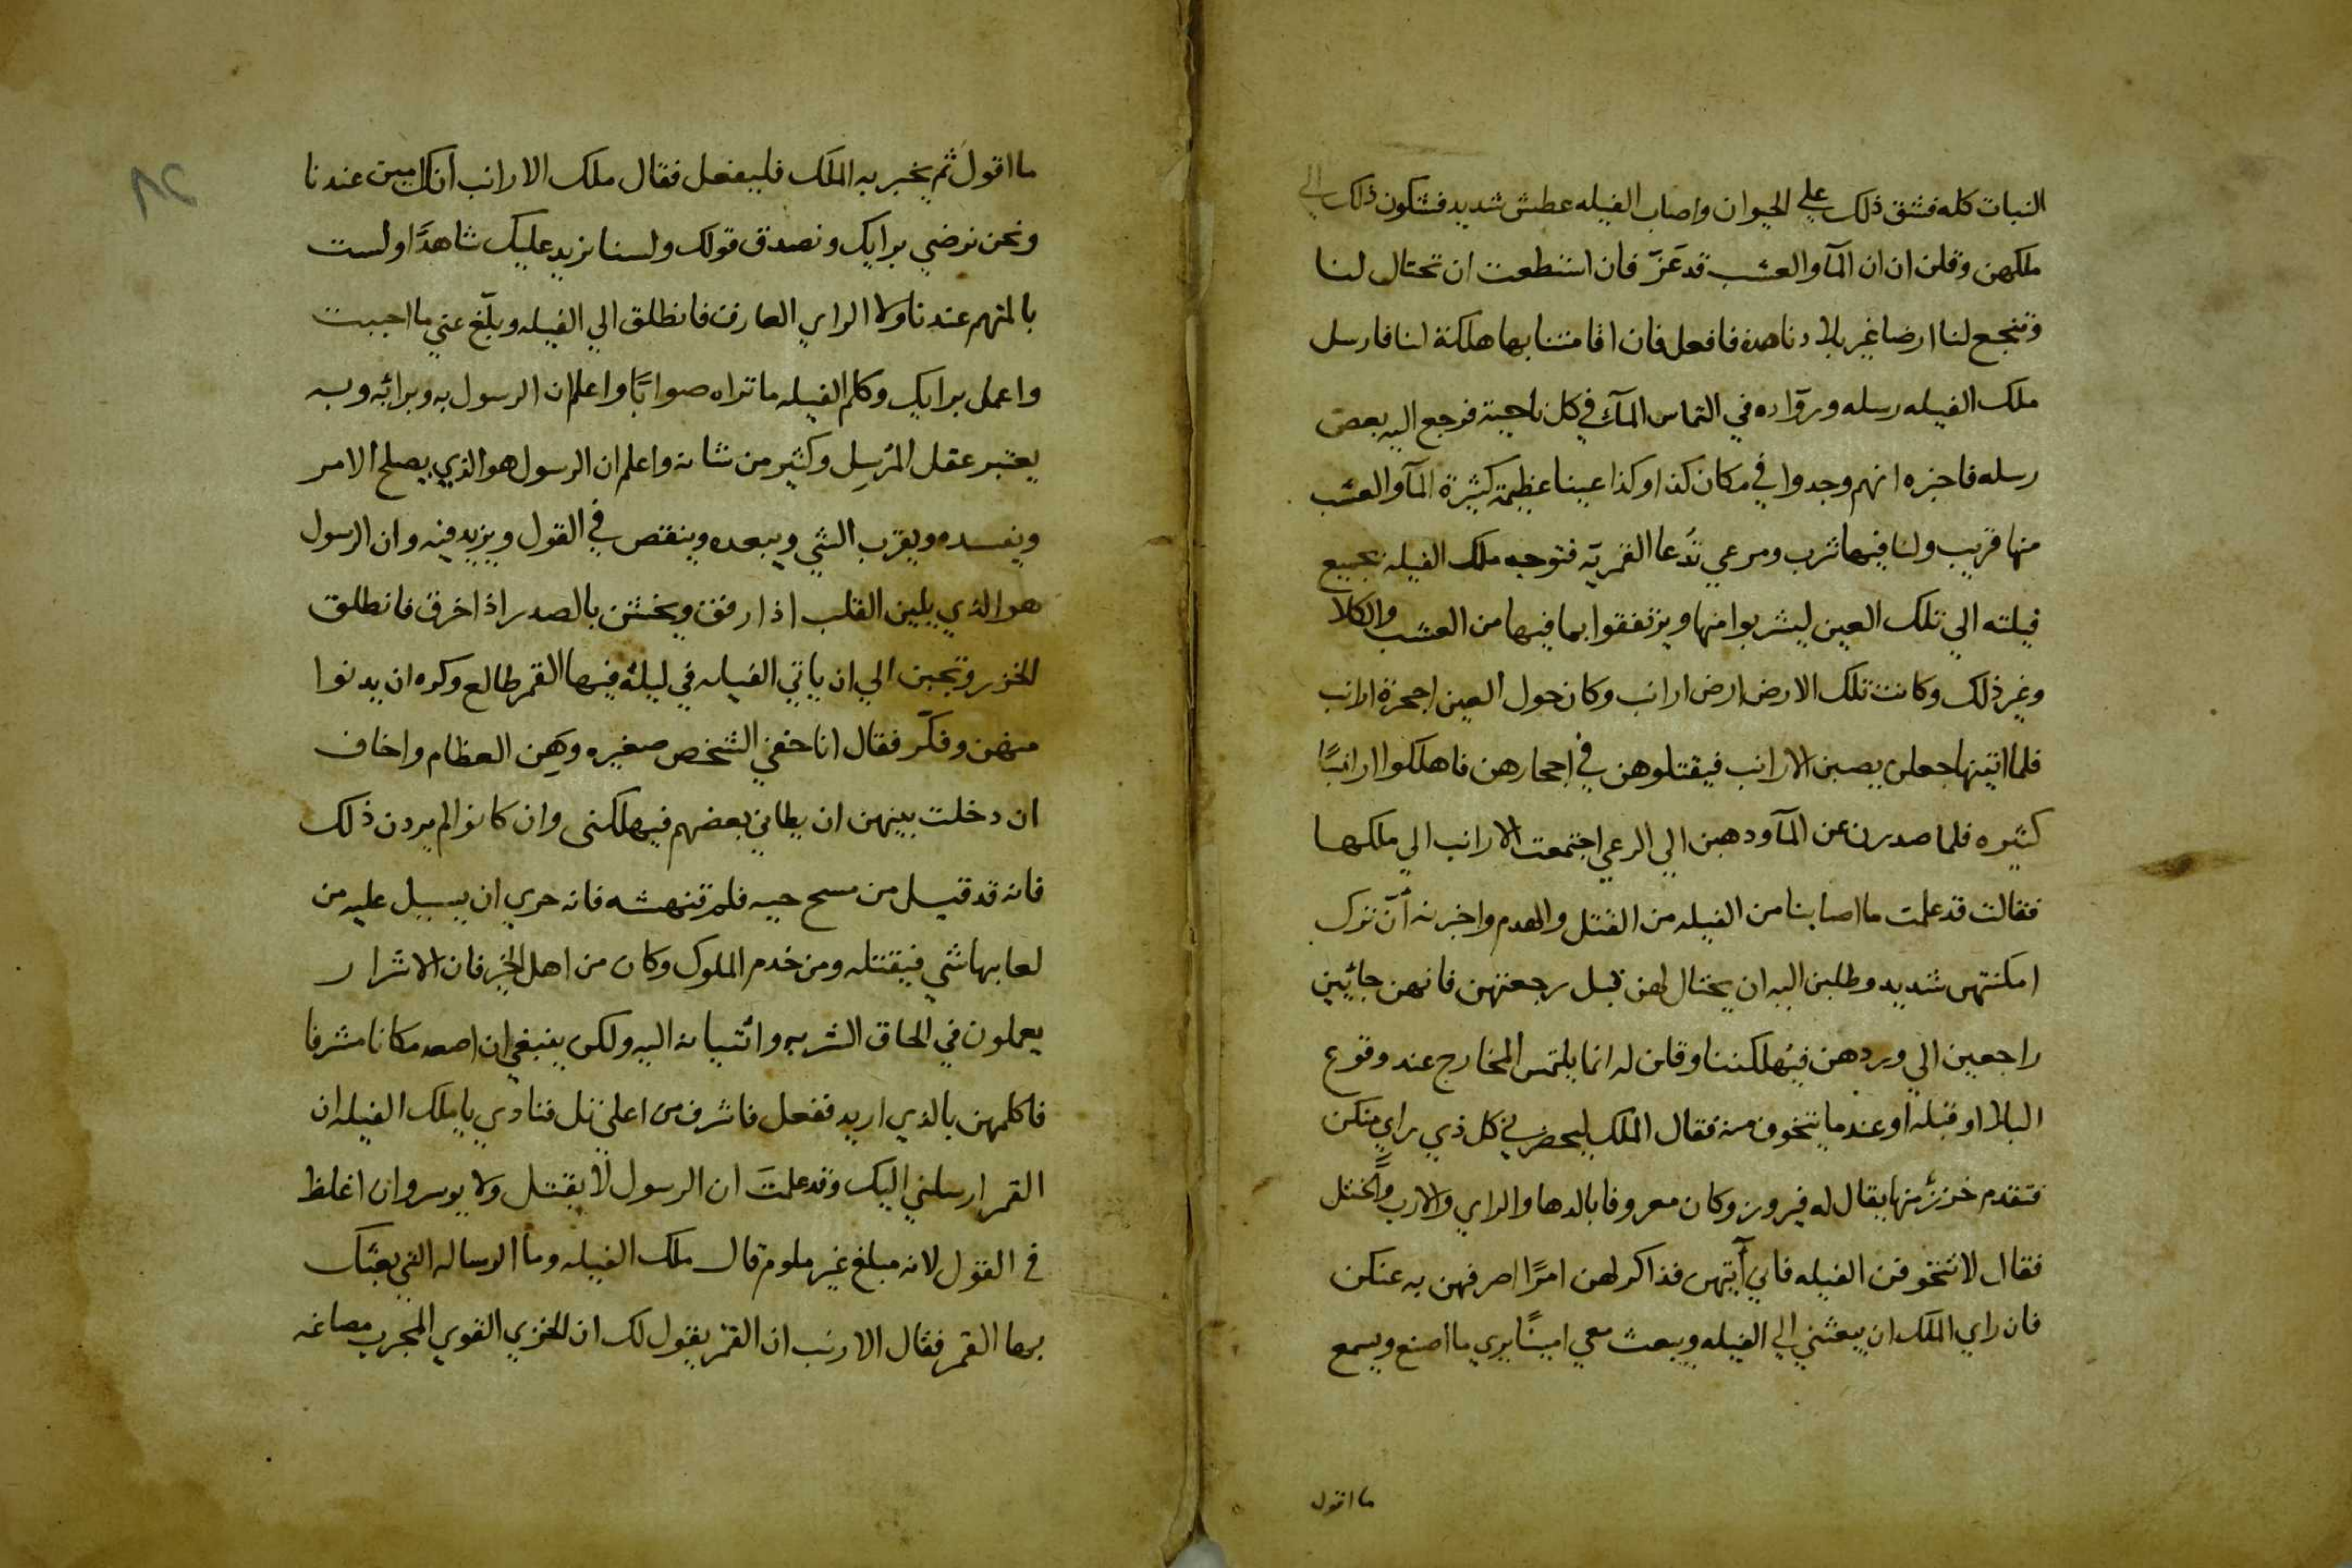 النبات كله فشق ذلك علي الحيوان واصاب الفيله عطش شديد فشكون ذلك الي
ملكهن وقلن ان ان المآ والعشب قد عَزّ فان استطعت ان تحتال لنا
وتنجع لنا ارضا غير بلادنا هذه فافعل فان اقامتنا بها هلكة لنا فارسل
ملك الفيله رسله وروّاده في التماس المآء في كل ناحية فرجع اليه بعض
رسله فاخبره انهم وجدوا في مكان كذا وكذا عينا عظيمة كثيرة المآ والعشب
منها قريب ولنا فيها شرب ومرعي تُدعا القمريّه فتوجه ملك الفيله بجميع
فيلته الي تلك العين ليشربوا منها ويرتفقوا بما فيها من العشب والكلا
وغير ذلك وكانت تلك الارض ارض ارانب وكان حول العين اجحرة ارانب
فلما اتينها جعلن يصبن الارانب فيقتلوهن في اجحارهن فاهلكوا ارانبًا
كثيره فلما صدرن عن المآ وذهبن الي الرعي اجتمعت الارانب الي ملكها
فقالت قد علمت ما اصابنا من الفيله من القتل والهدم واخبرنه أنّ ترك
امكنتهن شديد وطلبن اليه ان يحتال لهن قبل رجعتهن فانهن جائين
راجعين الي وردهن فيُهلكننا وقلن له انما يلتمس المخارج عند وقوع
البلا او قبله او عند ما يتخوف منه فقال الملك ليحضرني كل ذي راي منكن
فتقدم خززٌ منها يقال له فيروز وكان معروفا بالدها والراي والارب والختل
فقال لا تتخوفن الفيله فاني آتيهن فذاكر لهن امرًا اصرفهن به عنكن
فان راي الملك ان يبعثني الي الفيله ويبعث معي امينًا يري ما اصنع ويسمع
ما اقول
ما اقول ثم يخبر به الملك فليفعل فقال ملك الارانب انك امين عندنا
ونحن نرضي برايك ونصدق قولك ولسنا نريد عليك شاهدًا ولست
بالمتهم عندنا ولا الراي العارف فانطلق الي الفيله وبلّغ عني ما احببت
واعمل برايك وكلم الفيله ما تراه صوابًا واعلم ان الرسول به وبرائه وبه
يعتبر عقل المُرسِل وكثير من شانه واعلم ان الرسول هو الذي يصلح الامر
ويفسده ويقرب الشي ويبعده وينقص في القول ويزيد فيه وان الرسول
هو الذي يلين القلب اذا رفق ويخشن بالصدر اذا خرق فانطلق
الخزز وتجبن الي ان ياتي الفيله في ليلة فيها القمر طالع وكره ان يدنوا
منهن وفكّر فقال انا خفي الشخص صغيره وهن العظام واخاف
ان دخلت بينهن ان يطاني بعضهم فيهلكني وان كانوا لم يردن ذلك
فانه قد قيل من مسح حيه فلم تنهشه فانه حري ان يسيل عليه من
لعابها شي فيقتله ومن خدم الملوك وكان من اهل الخير فان الاشرار
يعملون في الحاق الشر به وائتيانه اليه ولكن ينبغي ان اصعد مكانا مشرفا
فاكلمهن بالذي اريد ففعل فاشرف من اعلي تل فنادي يا ملك الفيله ان
القمر ارسلني اليك وقد علمتَ ان الرسول لا يقتل ولا يوسر وان اغلظ
في القول لانه مبلغ غير ملوم قال ملك الفيله وما الرساله التي بعثك
بها القمر فقال الارنب ان القمر يقول لك ان للخزي القوي المجرب